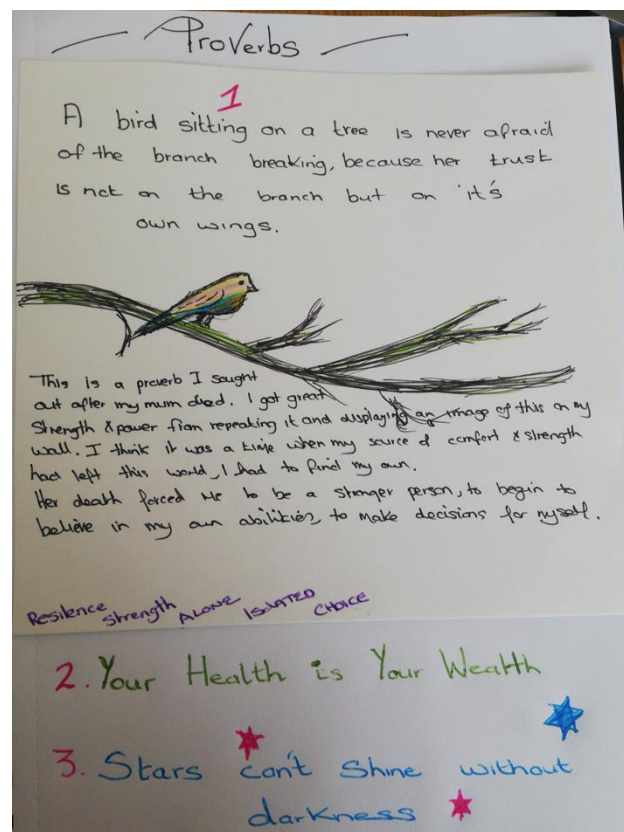 Proverbs
1
A bird sitting on a tree is never afraid
of the branch breaking, because her trust
is not on the branch but on it's
own wings.
This is a proverb I sought
out after my mum died. I got great
strength & power from repeating it and displaying an image of this on my
wall. I think it was a time when my source of comfort & strength
had left this world, I had to find my own.
Her death forced me to be a stronger person, to begin to
believe in my own abilities, to make decisions for myself.
Resilence Strength ALONE ISOLATED CHOICE
2. Your Health is Your Wealth
3. Stars can't Shine without
darkness